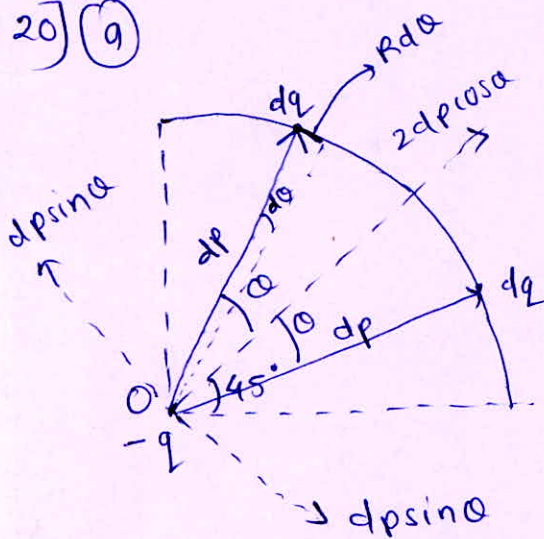 20] (9)
dq
Rdθ
2dpcosθ
dpsinθ
dp
dθ
θ
θ
dq
dp
O
45°
-q
dpsinθ